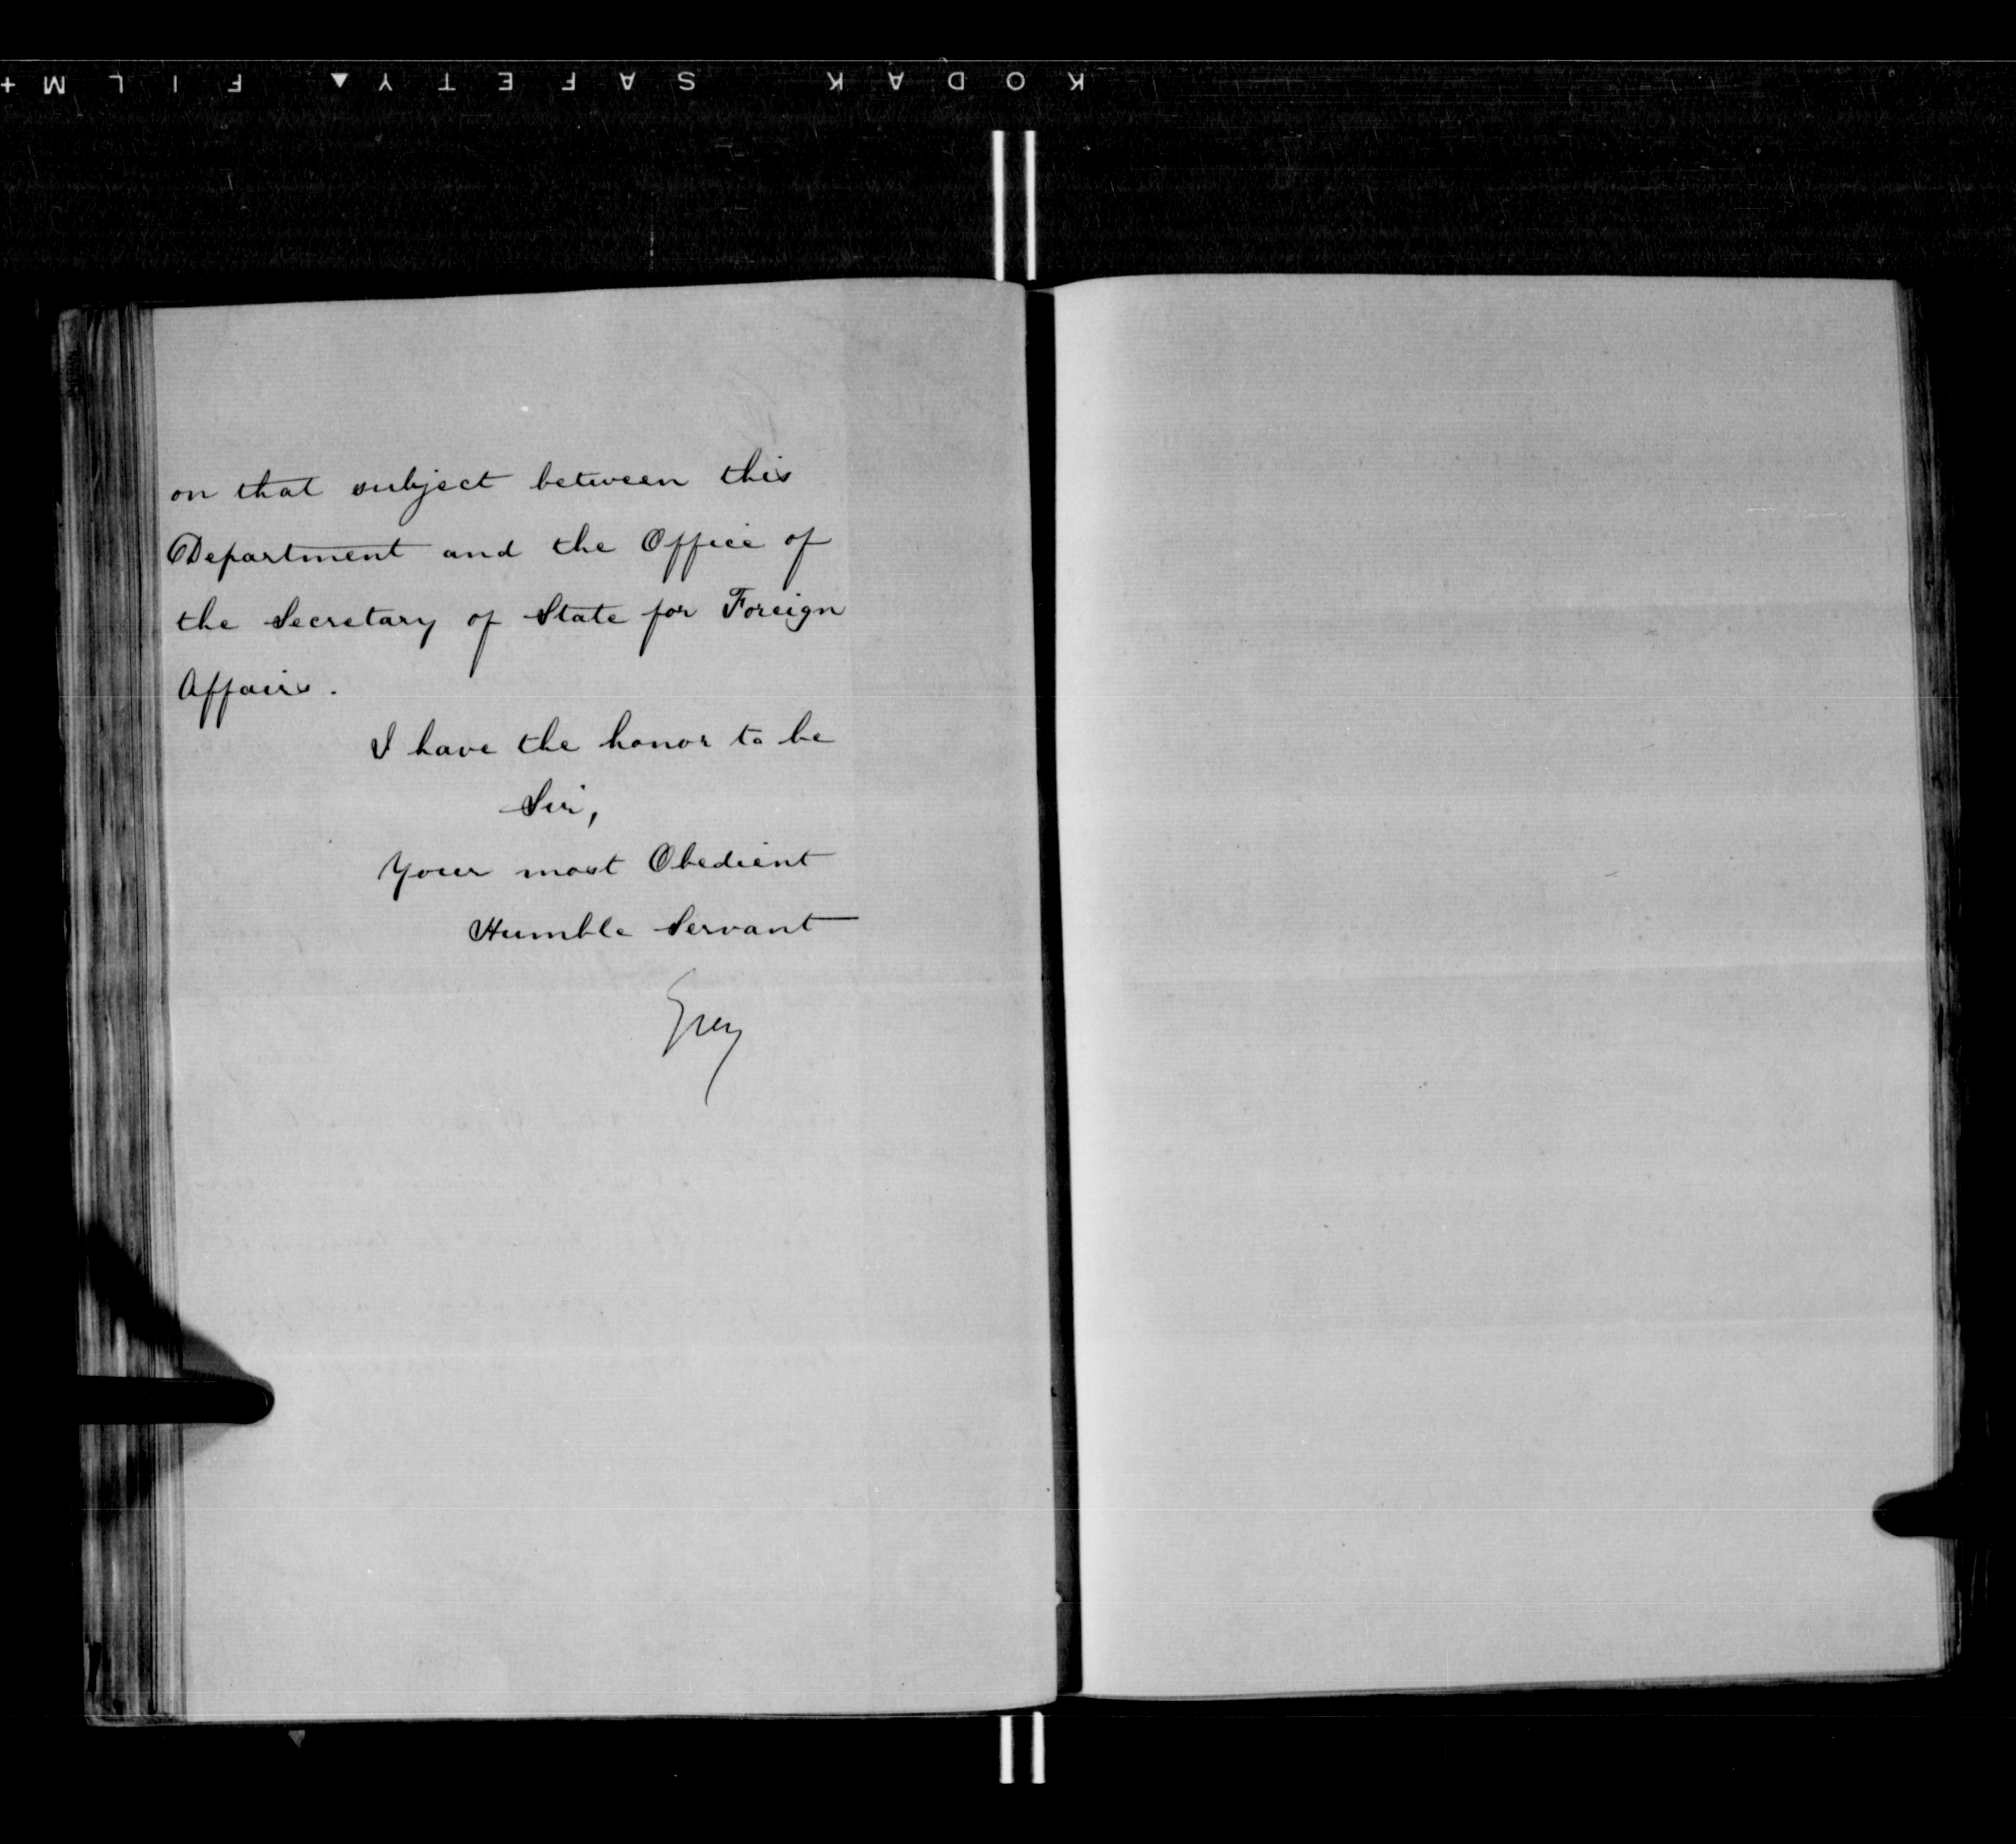 KODAK SAFETY FILM
on that subject between this
Department and the Office of
the Secretary of State for Foreign
Affairs.
I have the honor to be
Sir,
Your most Obedient
Humble Servant
Grey